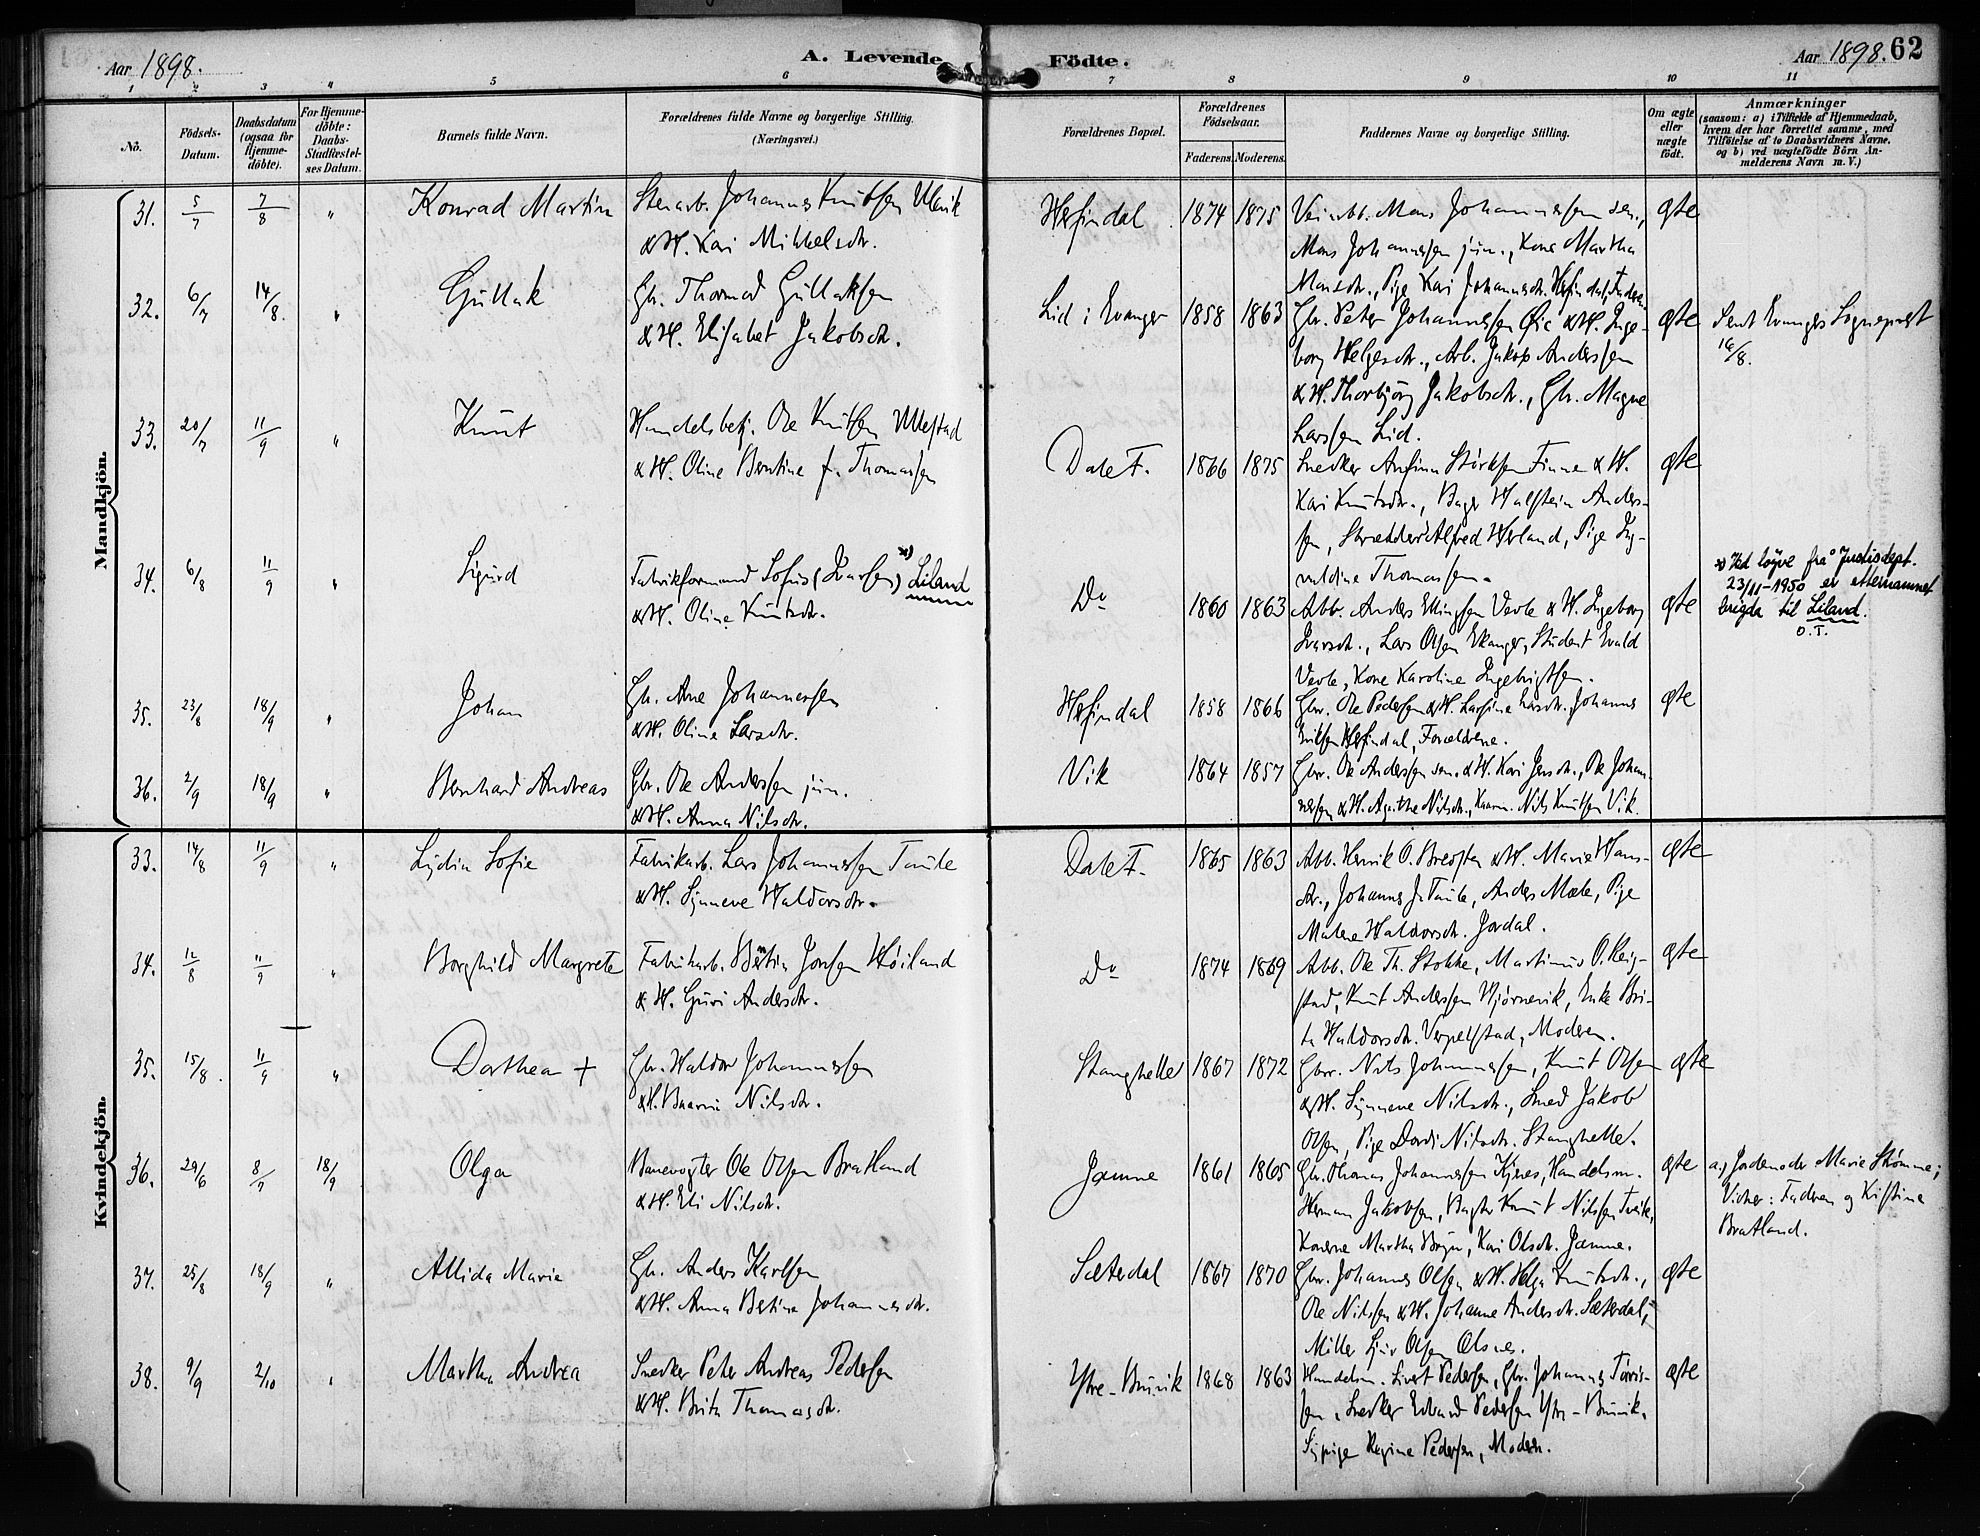 Aar 1898.
A. Levende Födte.
Aar 1898. 62
1 2 3 " 5 6 7 8 9 10 11
No.
Födsels-Datum.
Daabsdatum (ogsaa for Hjemme-döbte).
For Hjemme-döbte: Daabs-Stadfæstel-ses Datum.
Barnets fulde Navn.
Forældrenes fulde Navne og borgerlige Stilling. (Næringsvei.)
Forældrenes Bopæl.
Forældrenes Födselsaar.
Faderens. Moderens.
Faddernes Navne og borgerlige Stilling.
Om ægte eller nægte födt.
Anmærkninger
(saasom: a) i Tilfælde af Hjemmedaab,
hvem der har forrettet samme, med
Tilföielse af to Daabsvidners Navne,
og b) ved nægtefödte Börn An-
melderens Navn m. V.)
Mandkjön.
31. 5/7 7/8 " Konrad Martin
Stenarb. Johannes Knutsen Ulvik
& H. Kari Mikkelsdtr.
Hesjindal 1874 1875
Veiarb. Mons Johannessen sen.,
Mons Johannessen jun., Kone Martha
Monsdtr., Pige Kari Johannesdtr. Hesjindal, Faderen
ægte
32. 6/7 14/8. " Gullak
Gbr. Thomas Gullaksen
& H. Elisabet Jakobsdtr.
Lid i Evanger 1858 1863
Gbr. Peter Johannessen Øie & H. Inge-
borg Helgesdtr., Arb. Jakob Anderssen
& H. Thorbjörg Jakobsdtr., Gbr. Magne
Larssen Lid.
ægte
Sendt Evanger Sognepræst
16/8.
33. 20/7 11/9 " Knut
Handelsbetj. Ole Knutsen Ullestad
& H. Oline Berntine f. Thomassen
Dale F. 1866 1875
Snedker Anfinn Størksen Finne & H.
Kari Knutsdtr., Bager Halstein Anders-
sen, Skrædder Alfred Herland, Pige Ing-
valdine Thomassen.
ægte
34. 6/8 11/9 " Sigurd
Fabrikformand Sofus (Ivarsen) x) Liland
& H. Oline Knutsdtr.
Do 1860 1863
Arbb. Anders Ellingsen Vevle & H. Ingeborg
Ivarsdtr., Lars Olsen Ekanger, Student Evald
Vevle, Kone Karoline Ingebrigtsen.
ægte
x) Ved løyve frå Justisdept.
23/11-1950 er etternamnet
brigda til Liland.
O.T.
35. 23/8 18/9 " Johan
Gbr. Arne Johannessen
& H. Oline Larsdtr.
Hesjindal 1858 1866
Gbr. Ole Pedersen & H. Larsine Larsdtr., Johannes
Eriksen Hesjindal, Forældrene.
ægte
36. 2/9 18/9 " Bernhard Andreas
Gbr. Ole Anderssen jun.
& H. Anna Nilsdtr.
Vik 1864 1857
Gbr. Ole Anderssen sen. & H. Kari Jensdtr., Ole Johan-
nessen & H. Agathe Nilsdtr., Nils Knutsen Vik.
Kvindekjön.
33. 14/8 11/9 " Lydia Sofie
Fabrikarb. Lars Johannessen Taule
& H. Synneve Haldorsdtr.
Dale F. 1865 1863
Arbb. Henrik O. & H. Marie Hans-
dtr., Johannes J. Taule, Anders Mæle, Pige
Malene Haldorsdtr. Jordal.
ægte
34. 12/8 11/9 " Borghild Margrete
Fabrikarb. Bertin Jonsen Høiland
& H. Guri Andersdtr.
Do 1874 1869
Arbb. Ole Th. Stokke, Martinus O. Reig-
stad, Knut Anderssen Hjørnevik, Enke Bri-
ta Haldorsdtr. Verpelstad, Moderen.
ægte
35. 15/8. 11/9 " Dorthea +
Gbr. Haldor Johannessen
& H. Nilsdtr.
Stanghelle 1867 1872
Gbrr. Nils Johannessen, Knut Olsen
& H. Synneve Nilsdtr., Smed Jakob
Olsen, Pige Dordi Nilsdtr. Stanghelle.
ægte
36. 29/6 8/7 18/9 Olga
Banevogter Ole Olsen Bratland
& H. Eli Nilsdtr.
Jamne 1861 1865
Gbr. Thomas Johannessen Kjenes, Handelsm.
Herman Jakobsen, Bagter Knut Nilssen Tveit,
Konerne Martha Bryn, Kari Olsdtr. Jamne.
ægte
a.) Jordemoder Marie Skømme;
Vidner: Faderen og Kistine
Bratland.
37. 25/8 18/9 " Allida Marie
Gbr. Anders Karlsen
& H. Anna Bertine Johannesdtr.
Sætedal 1867 1870
Gbr. Johannes Olsen & H. Helga Knutsdtr.,
Ole Nilssen & H. Johanne Andersdtr. Sæterdal,
Møller Olsen Olsnes.
ægte
38. 9/9 2/10 " Martha Andrea
Snedker Peter Andreas Pedersen
& H. Brita Thomasdtr.
Ytre-Bruvik 1868 1863
Handelsm. Sivert Pedersen, Gbr. Johannes Torris-
sen, Snedker Edvard Pedersen Ytre-Bruvik,
Sypige Regine Pedersen, Moderen.
ægte